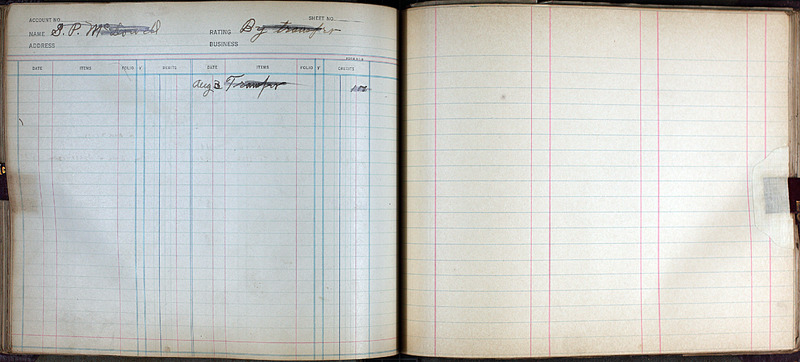 ACCOUNT NO. SHEET NO.
NAME S. P. McDowell RATING By transfer
ADDRESS BUSINESS
DATE ITEMS FOLIO √ DEBITS DATE ITEMS FOLIO √ CREDITS
Aug 3 Transfer